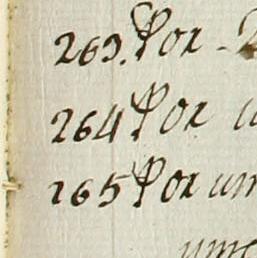 263. Por
264 Por
265 Por um
ume